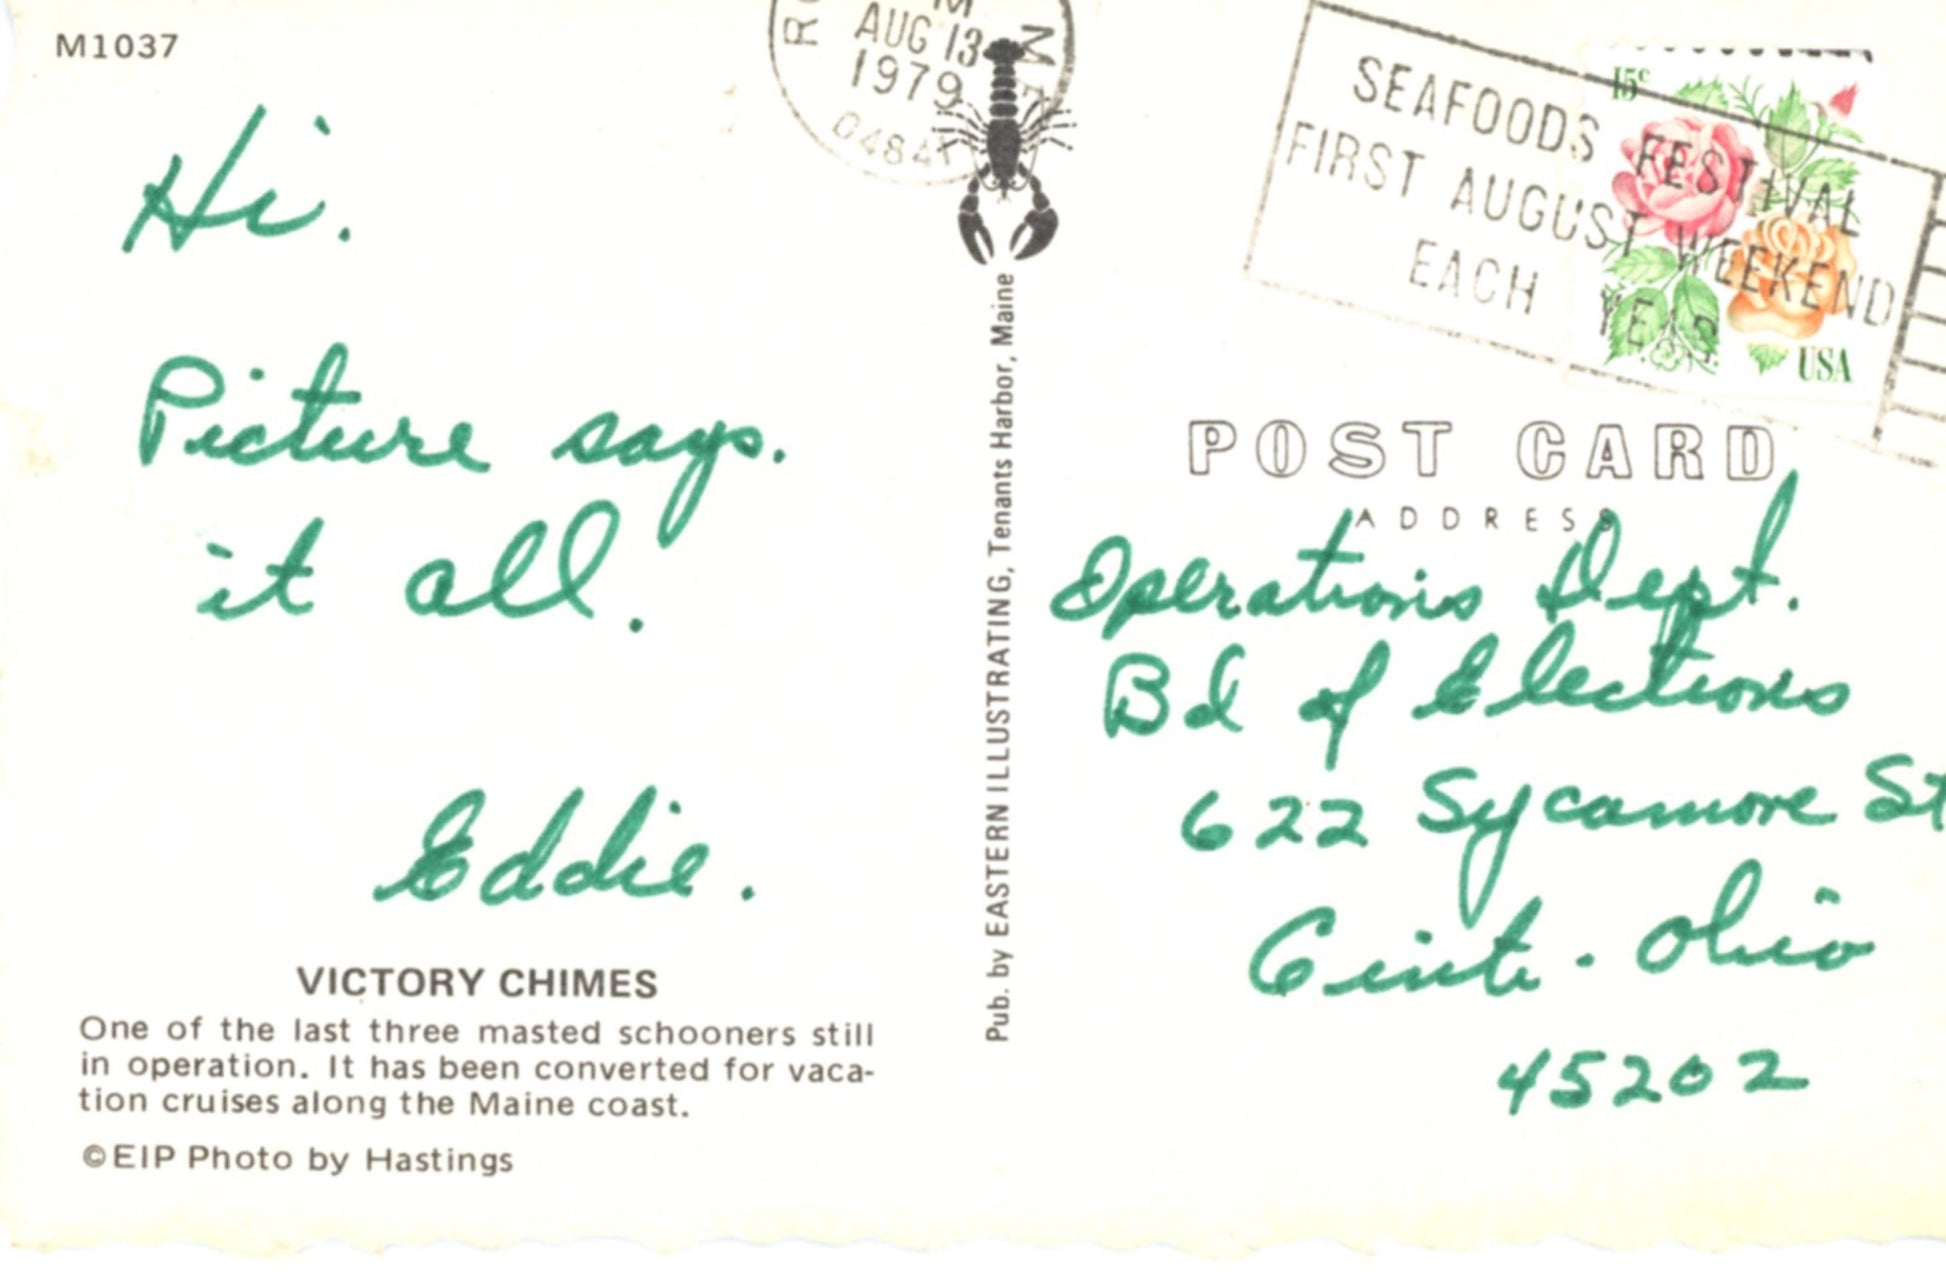 M1037
AUG 13
1979
SEAFOODS FESTIVAL
FIRST AUGUST WEEKEND
EACH YEAR
15c
USA
Hi.
Picture says.
it all.
Eddie.
VICTORY CHIMES
One of the last three masted schooners still
in operation. It has been converted for vaca-
tion cruises along the Maine coast.
©EIP Photo by Hastings
Pub. by EASTERN ILLUSTRATING, Tenants Harbor, Maine
POST CARD
ADDRESS
Operations Dept.
Bd of Elections
622 Sycamore St
Cinti. Ohio
45202